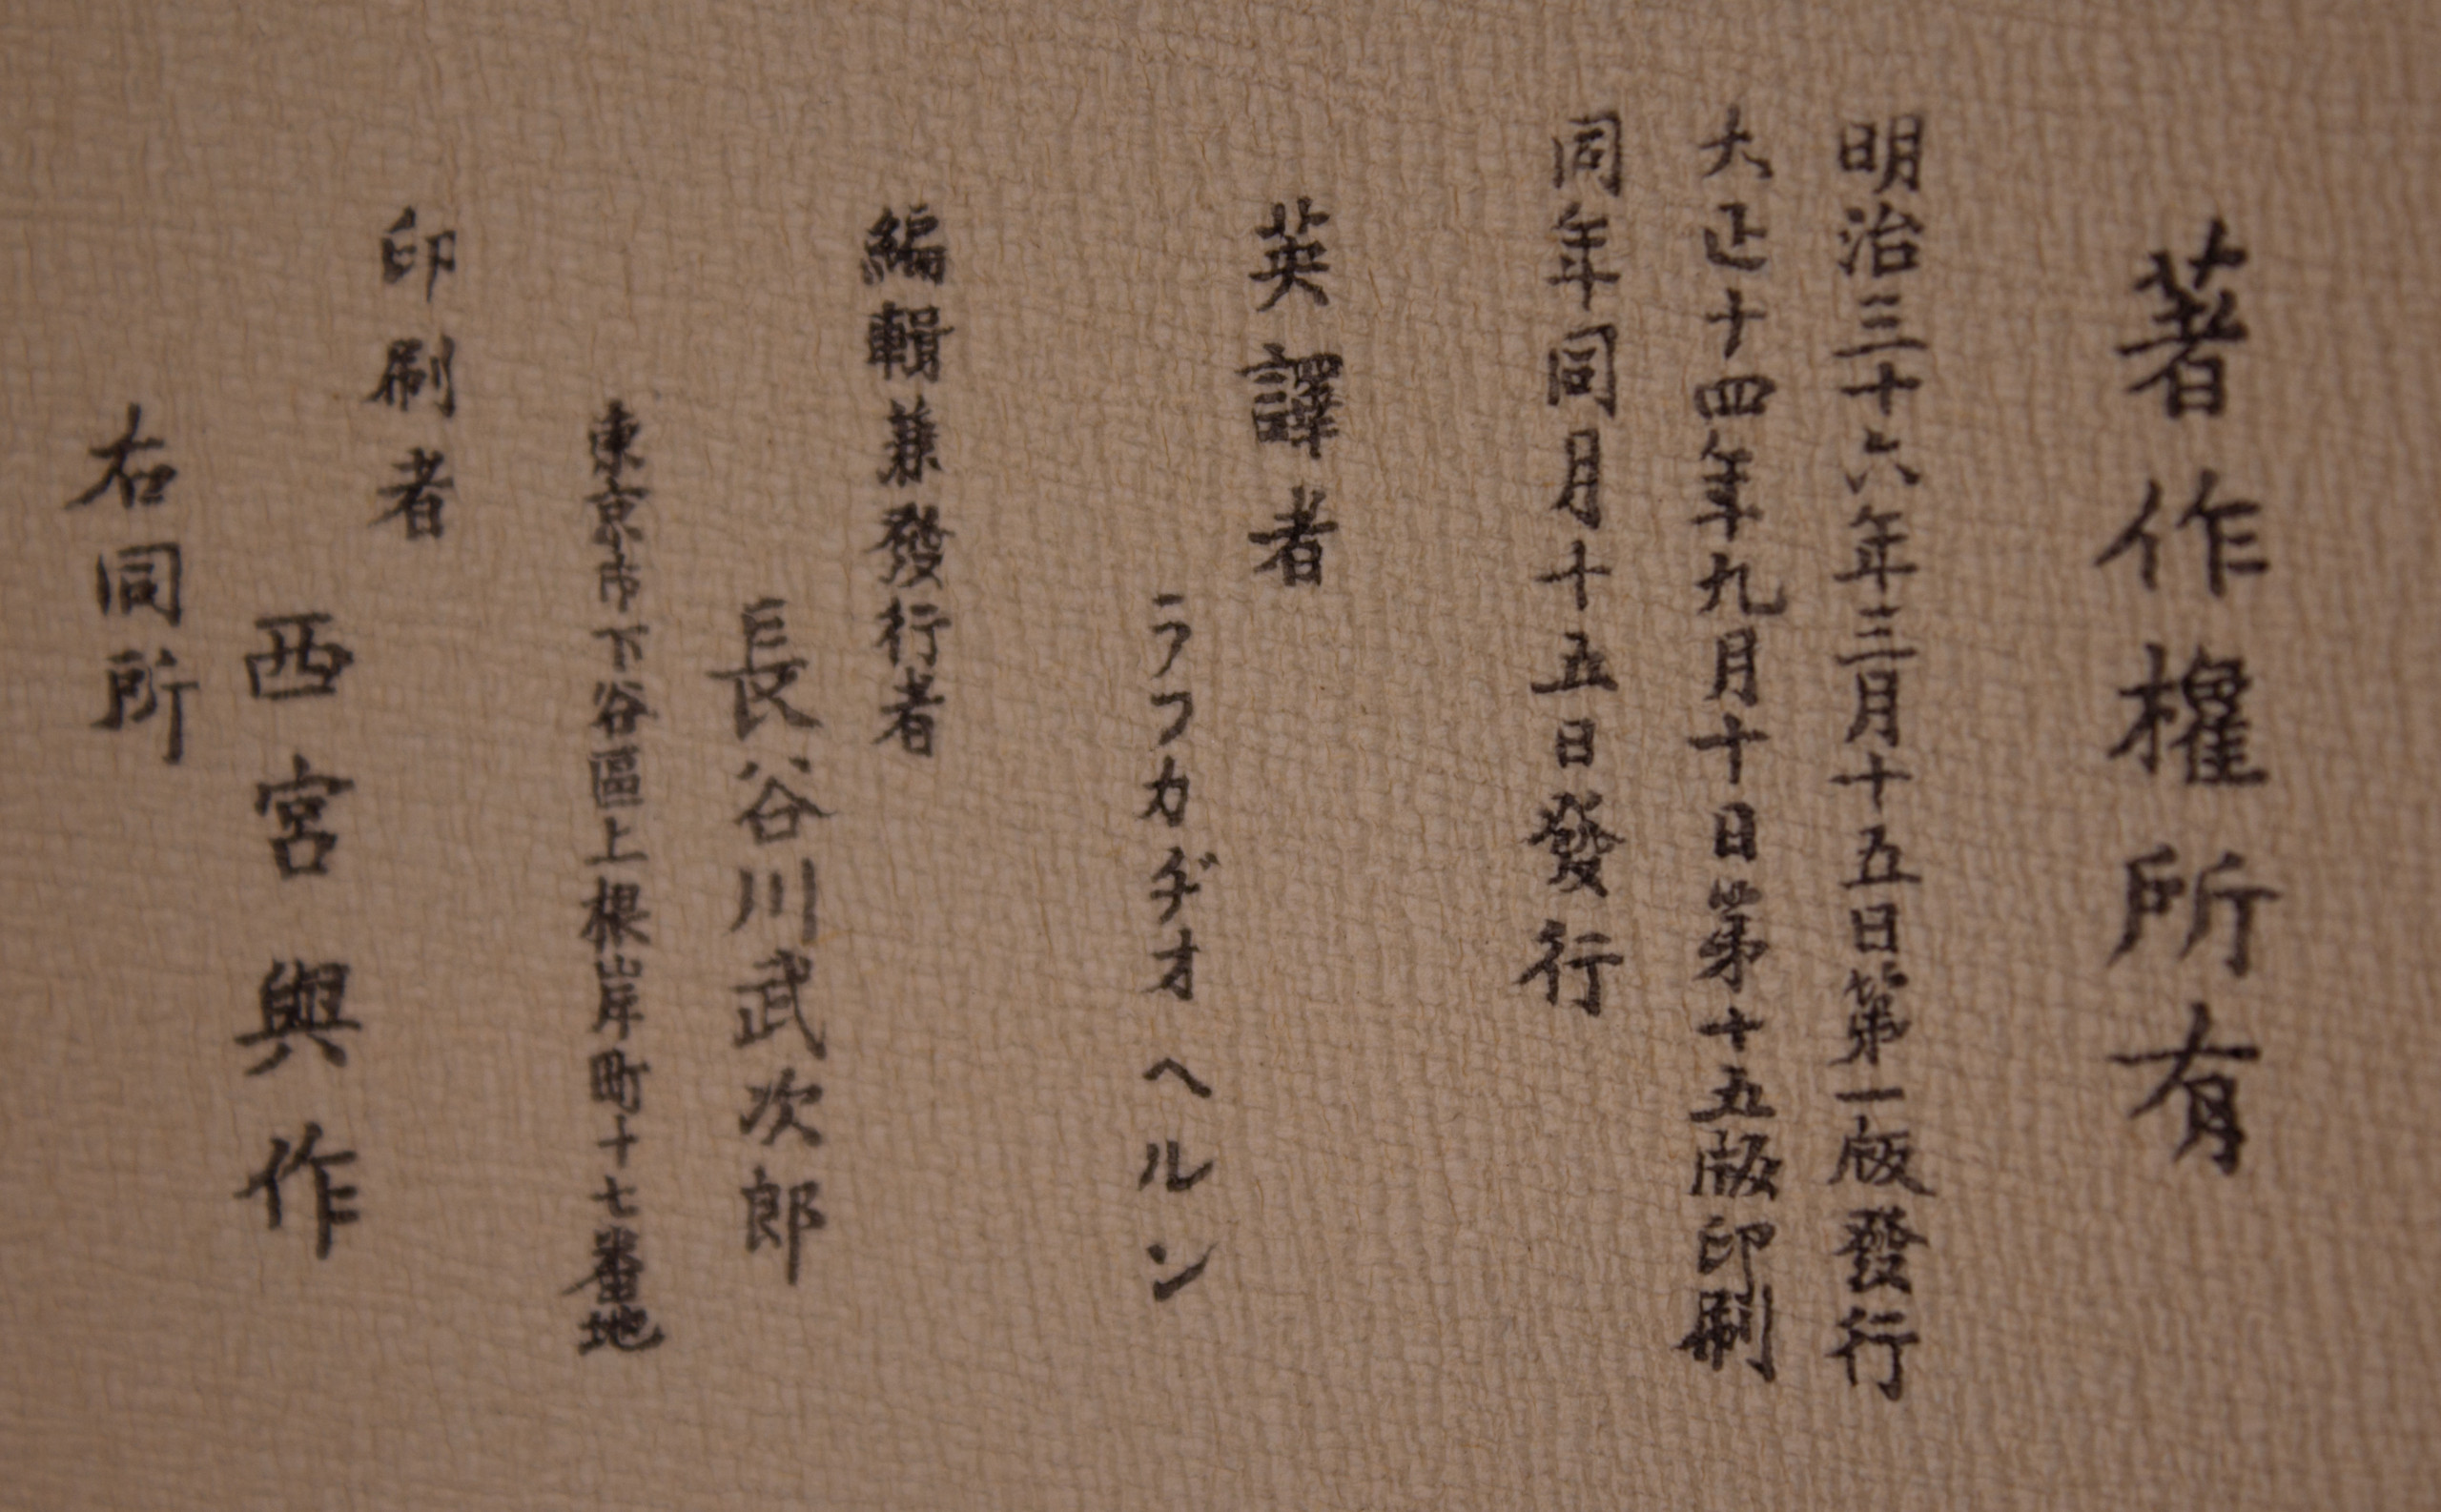 著作權所有
明治三十六年三月十五日第一版發行
大正十四年九月十日第十五版印刷
同年同月十五日發行
英譯者
ラフカヂオヘルン
編輯兼發行者
長谷川武次郎
東京市下谷區上根岸町十七番地
印刷者
西宮與作
右同所